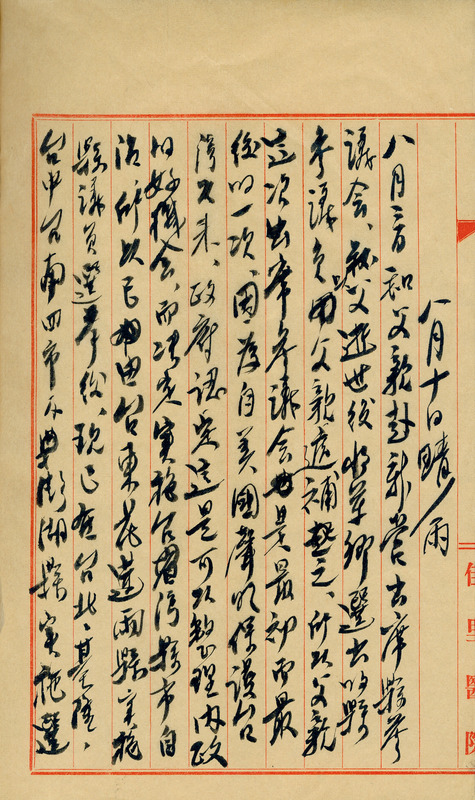 八月十日 晴/雨
八月三日和父親赴新營出席縣參
議會、叔父逝世後將軍鄉選出的縣
參議員由父親遞補之、所以父親
這次出席參議會也是最初而最
後的一次、因為自美國聲明保護台
灣以來、政府認定這是可以整理內政
的好機會、而決定實施台灣縣市自
治所以已由台東花蓮兩縣實施
縣議員選舉後、現已在台北、基隆、
台中台南四市及澎湖縣實施選
佳里醫院